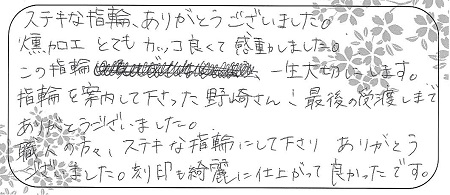 ステキな指輪、ありがとうございました。
燻加工 とても カッコ良くて 感動しました。
この指輪、一生大切にします。
指輪を案内して下さった 野崎さん 最後の受渡しまで
ありがとうございました。
職人の方々、ステキな指輪にして下さり ありがとう
ございました。刻印も綺麗に仕上がって 良かったです。